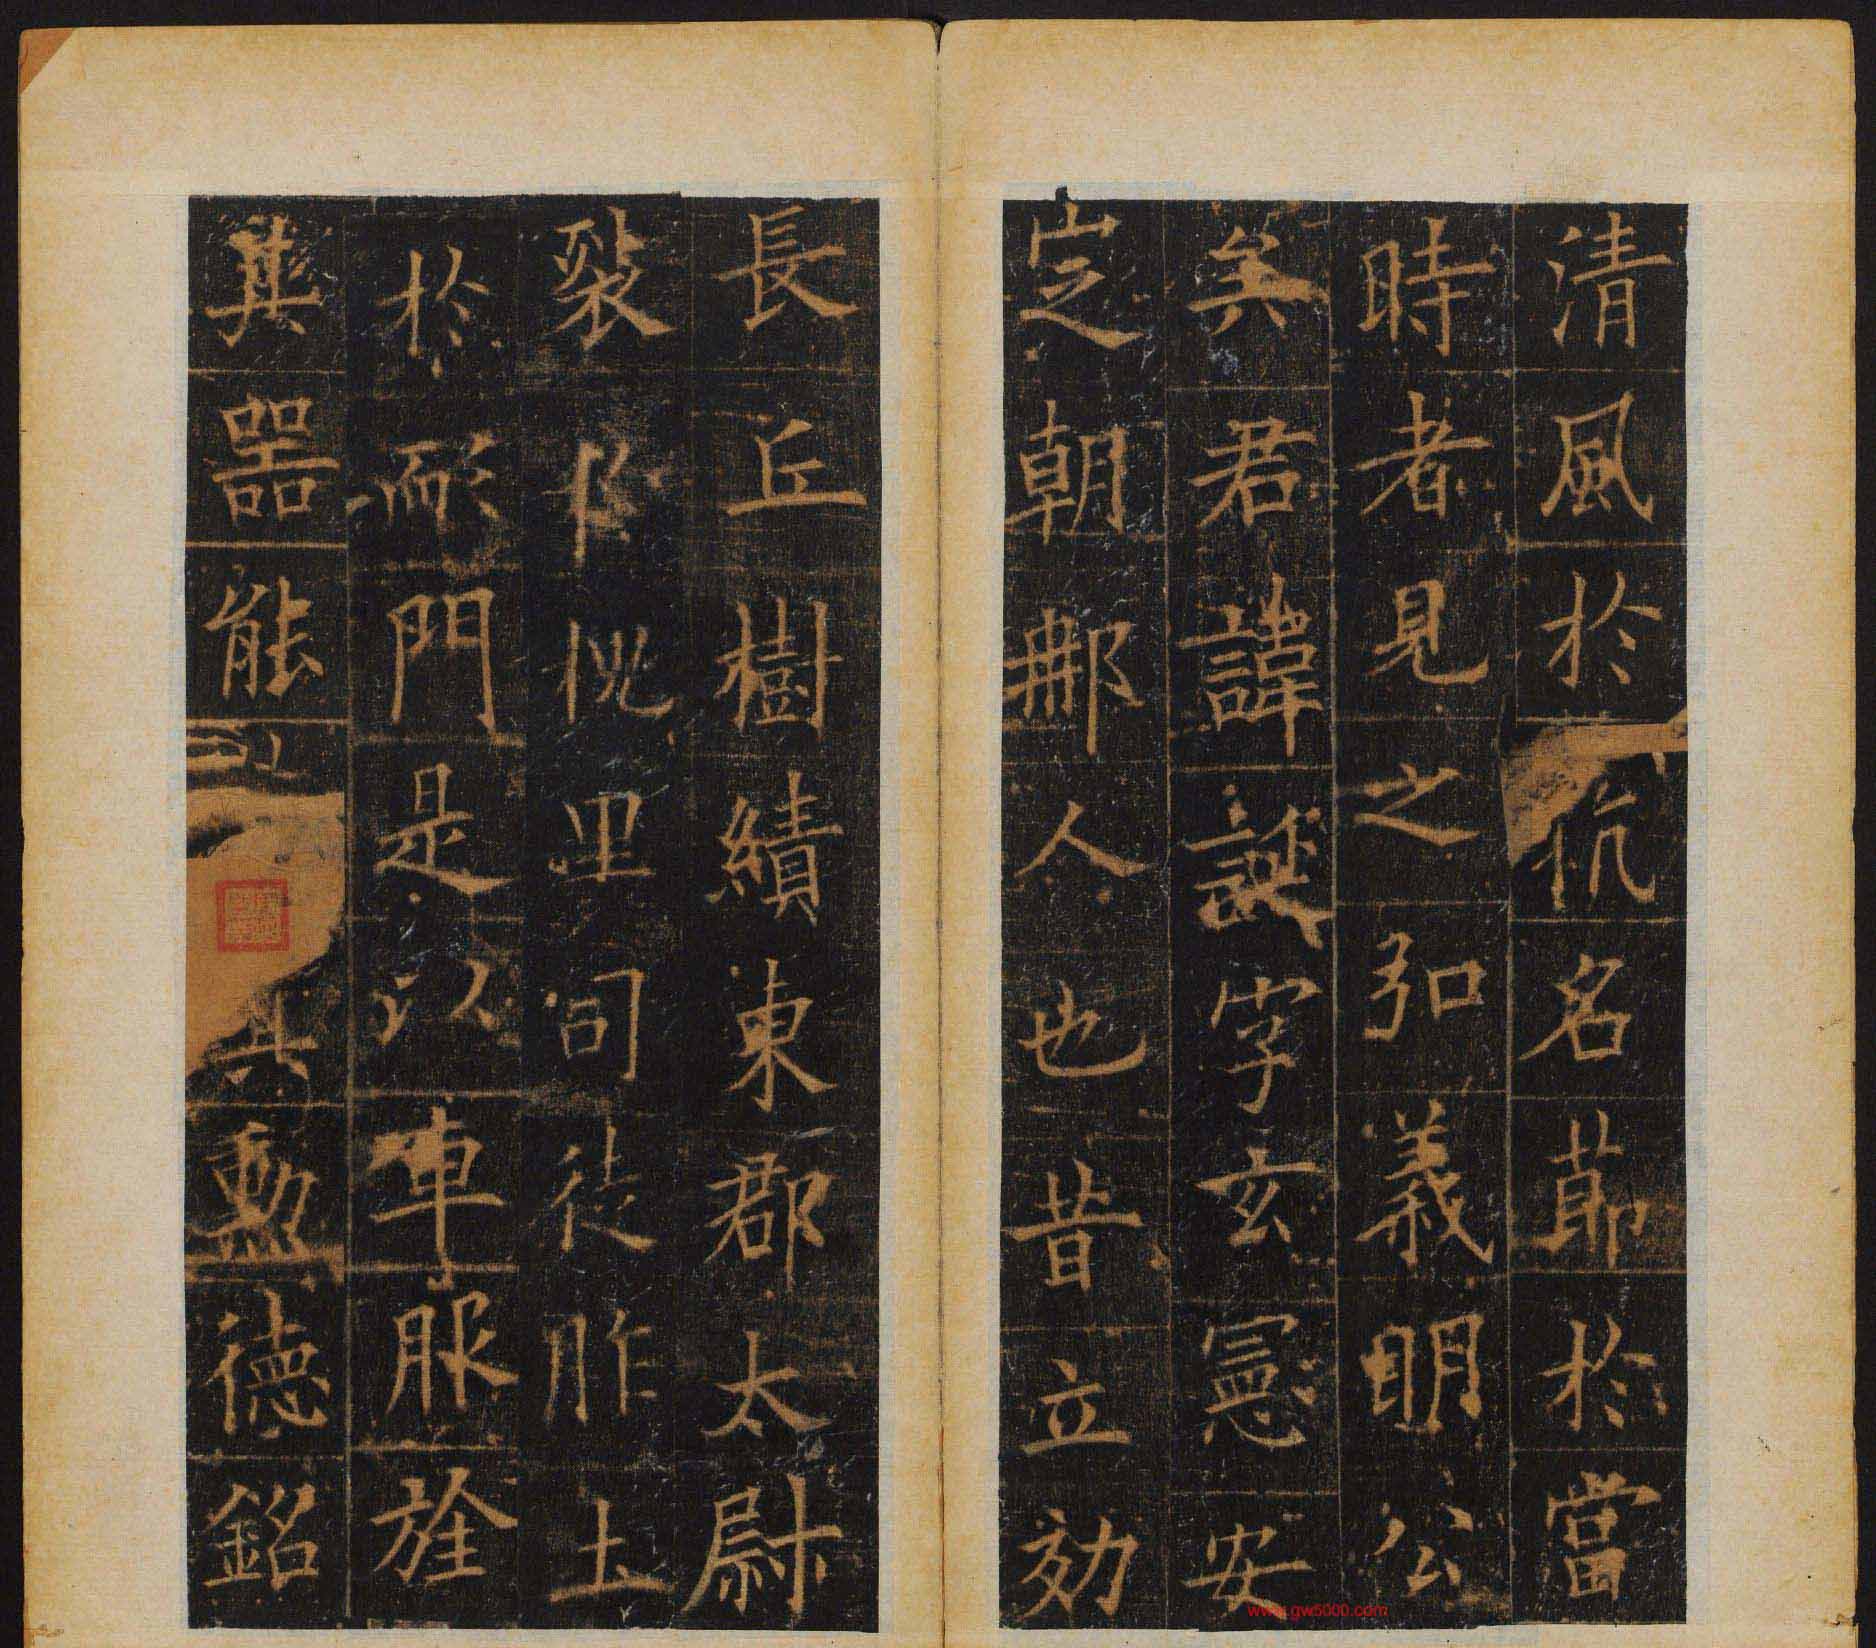 清風於抗名節於當
時者見之弘義明公
矣君諱誕字玄憲安
定朝那人也昔立効
長丘樹績東郡太尉
裂槐里司徒胙土
於耏門是以車服旌
其器能其勳德銘
www.gw5000.com